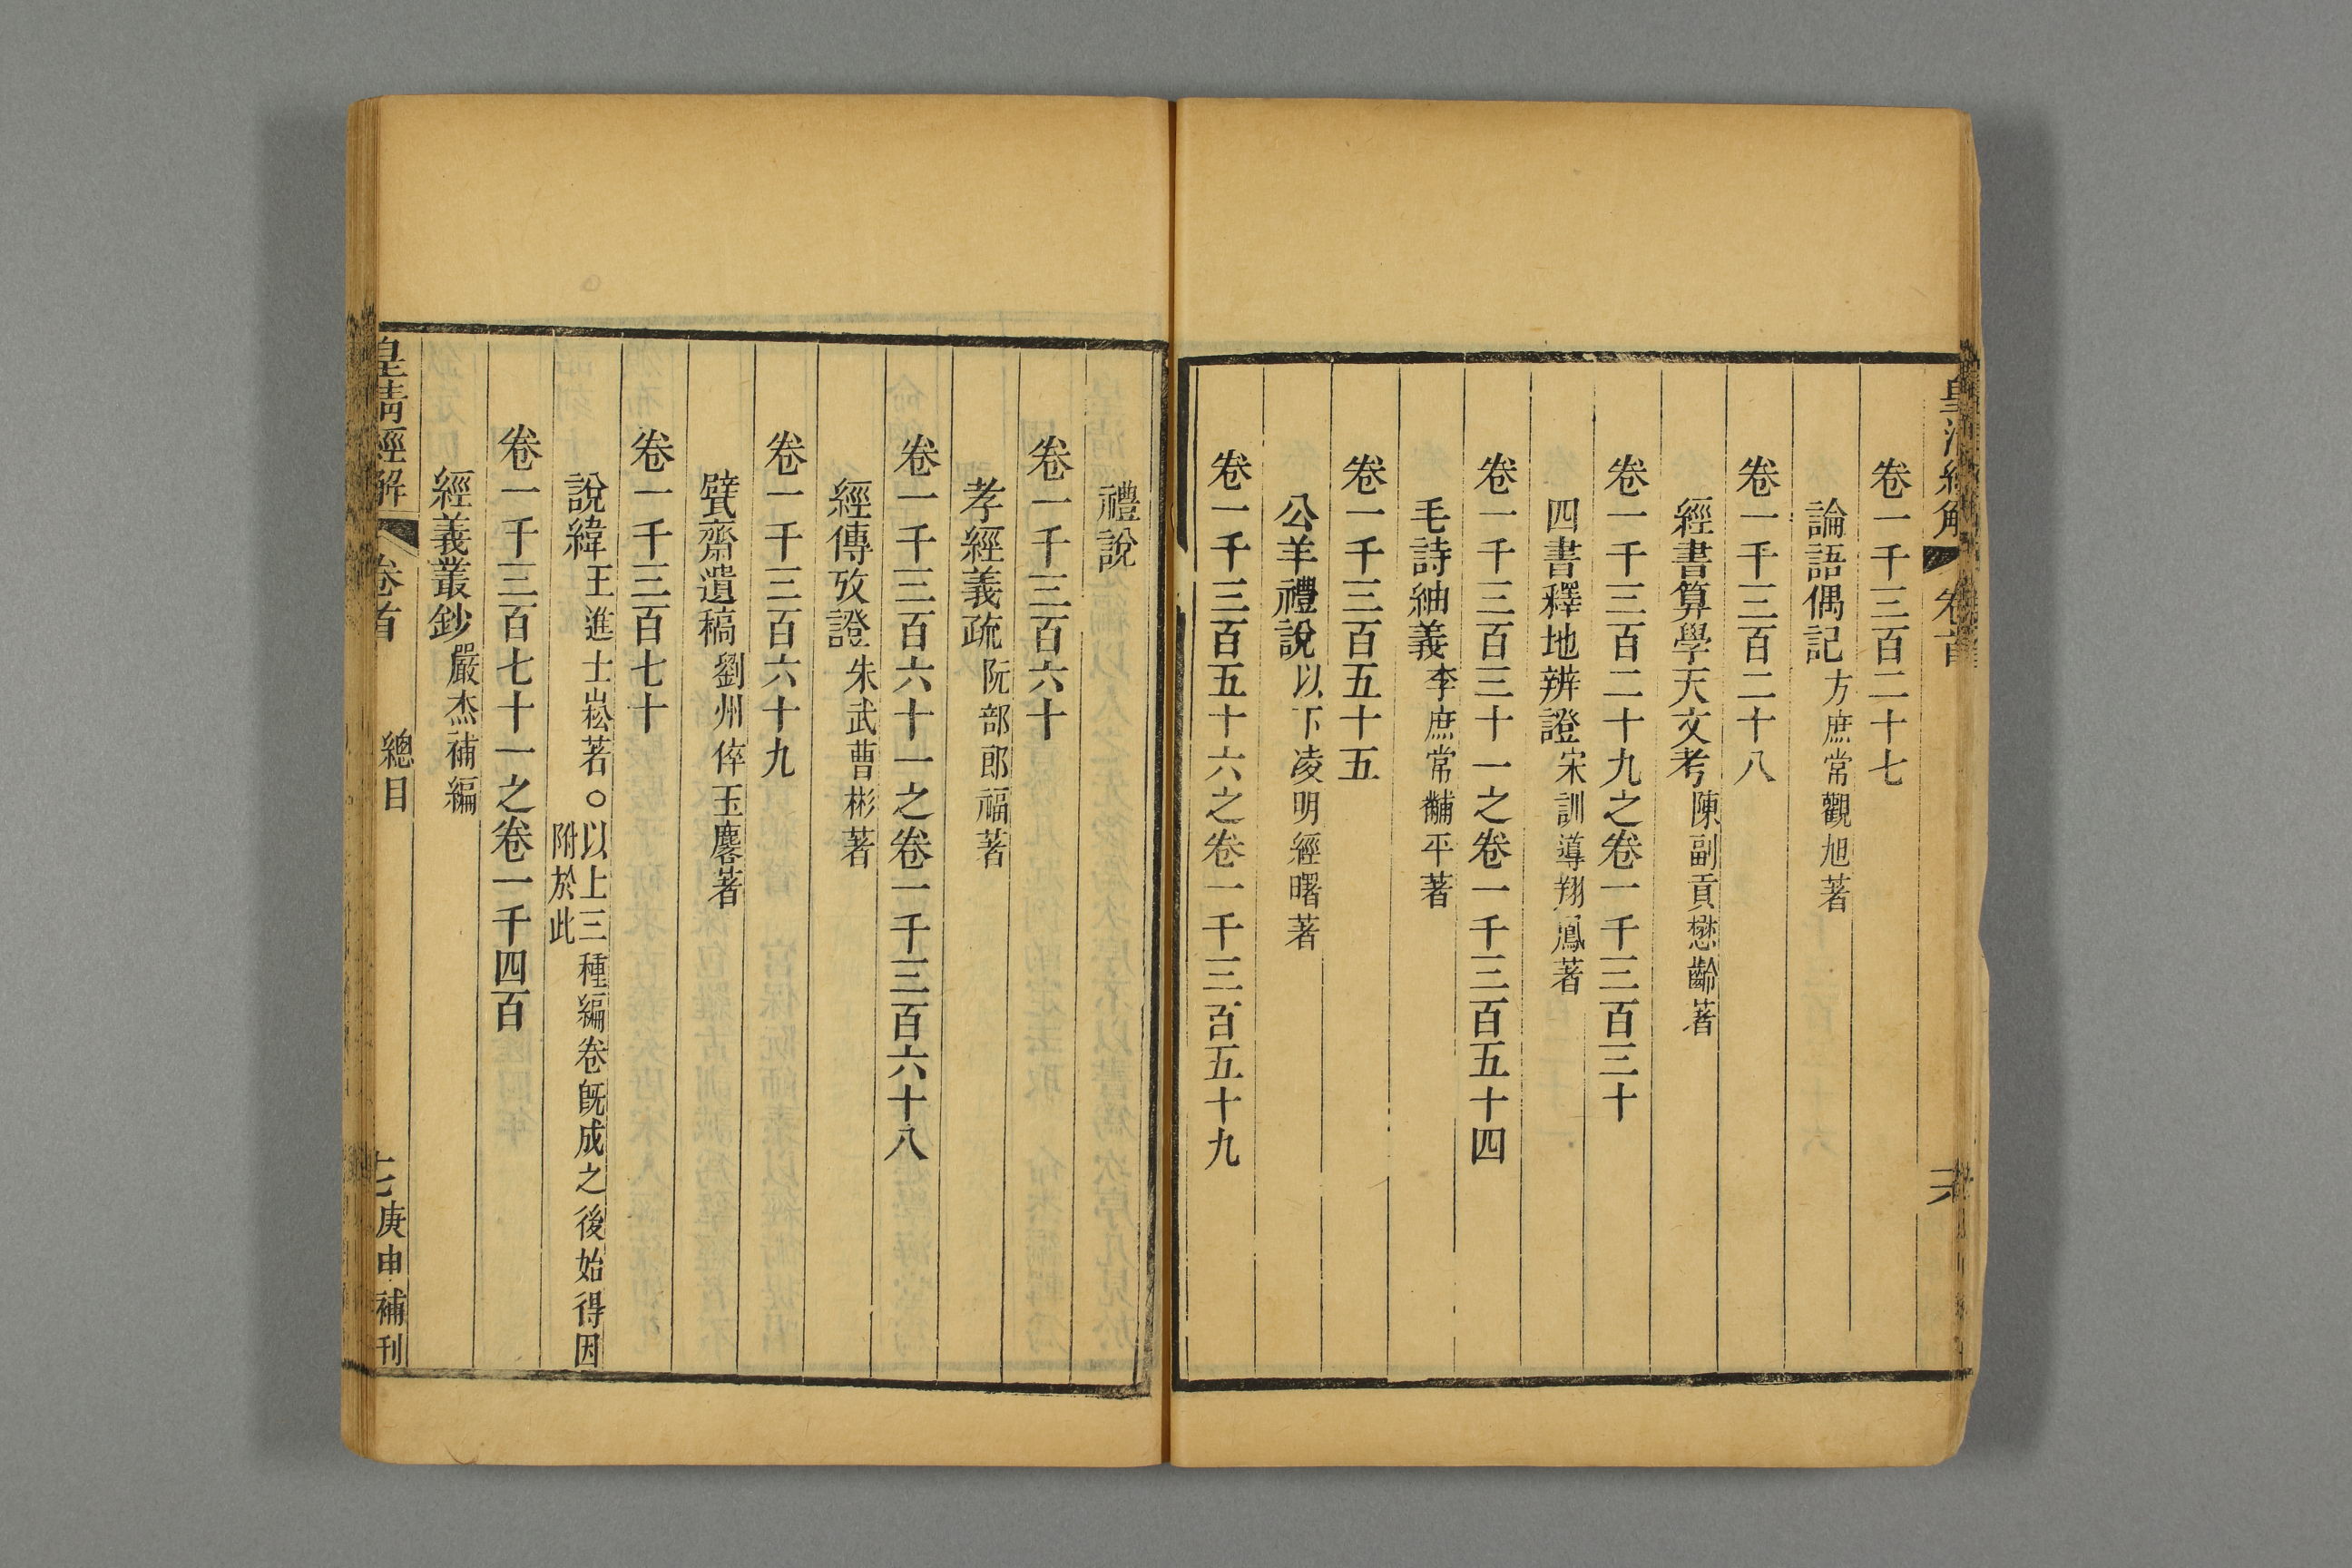 皇清經解 卷首
卷一千三百二十七
論語偶記 方庶常觀旭著
卷一千三百二十八
經書算學天文考 陳副貢懋齡著
卷一千三百二十九之卷一千三百三十
四書釋地辨證 宋訓導翔鳳著
卷一千三百三十一之卷一千三百五十四
毛詩紬義 李庶常黼平著
卷一千三百五十五
公羊禮說 以下凌明經曙著
卷一千三百五十六之卷一千三百五十九
禮說
卷一千三百六十
孝經義疏 阮部郎福著
卷一千三百六十一之卷一千三百六十八
經傳攷證 朱武曹彬著
卷一千三百六十九
甓齋遺稿 劉州倅玉麐著
卷一千三百七十
說緯 王進士崧著○以上三種編卷既成之後始得因
附於此
卷一千三百七十一之卷一千四百
經義叢鈔 嚴杰補編
皇清經解 卷首 總目 七 庚申補刊